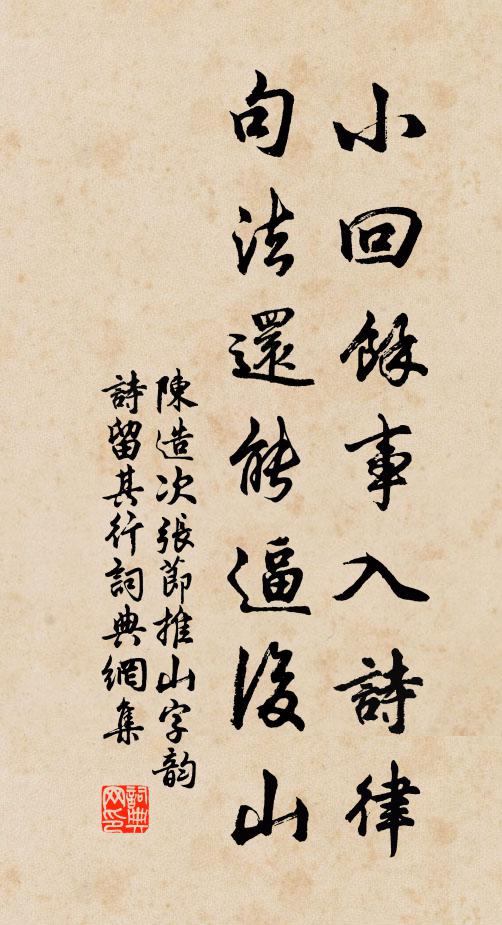 小回餘事入詩律
句法還能逼後山
陳造次張節推山字韵
詩留其行詞典網集
詞典网印